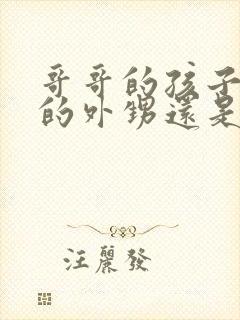 哥哥的孩子
的外甥還是
汪麗發